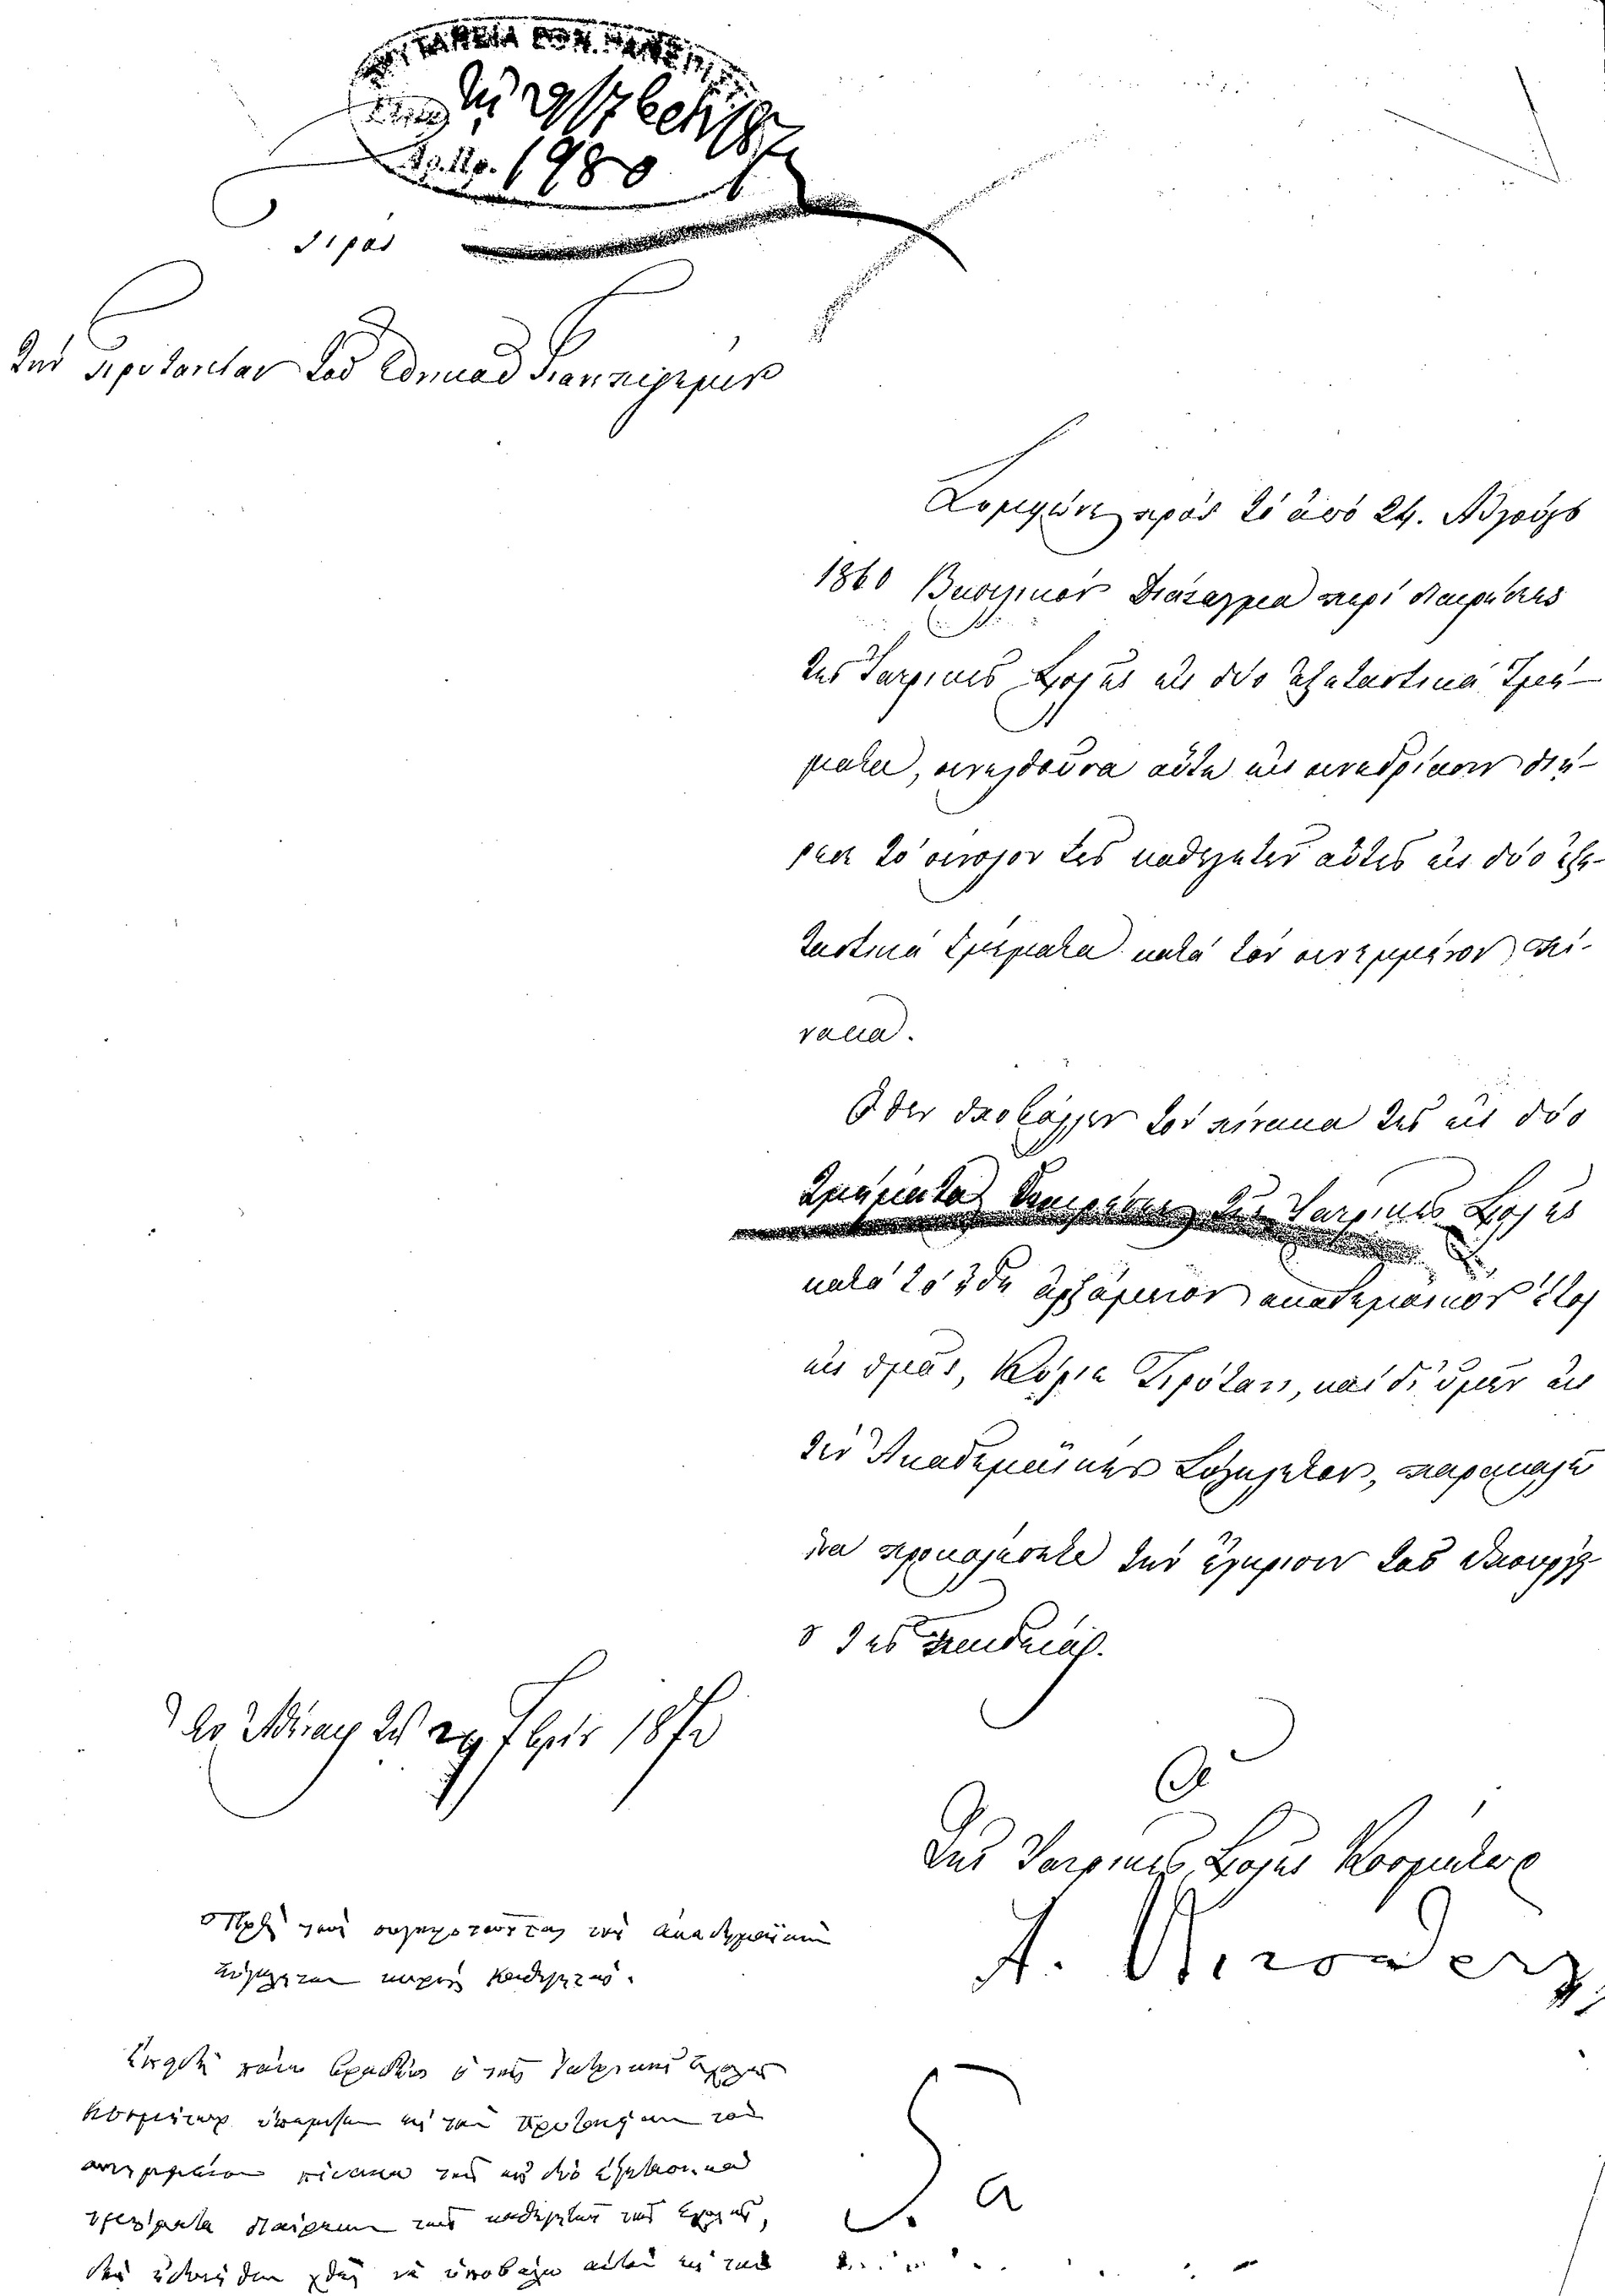 1980
Πρὸς
τὴν Πρυτανείαν τοῦ Ἐθνικοῦ Πανεπιστημίου
Συμφώνως πρὸς τὸ ἀπὸ 24. Αὐγούστου
1860 Βασιλικὸν Διάταγμα περὶ διαιρέσεως
τῆς Ἰατρικῆς Σχολῆς εἰς δύο ἐξεταστικὰ Τμή-
ματα, συνελθοῦσα αὕτη εἰς συνεδρίασιν διῄ-
ρεσε τὸ σύνολον τῶν καθηγητῶν αὐτῆς εἰς δύο ἐξε-
ταστικὰ τμήματα κατὰ τὸν συνημμένον πί-
νακα.
Ὅθεν ὑποβάλλων τὸν πίνακα τῆς εἰς δύο
τμήματα διαιρέσεως τῆς Ἰατρικῆς Σχολῆς
κατὰ τὸ ἤδη ἀρξάμενον ἀκαδημαϊκὸν ἔτος
εἰς ὑμᾶς, Κύριε Πρύτανι, καὶ δι' ὑμῶν εἰς
τὴν Ἀκαδημαϊκὴν Σύγκλητον, παρακαλῶ
ἵνα προκαλέσητε τὴν ἔγκρισιν τοῦ Ὑπουργείου
τῆς Παιδείας.
Ἐν Ἀθήναις τῇ 24 7βρίου 187
Ὁ
τῆς Ἰατρικῆς Σχολῆς Κοσμήτωρ
Πρὸς τοὺς συγκροτοῦντας τὴν ἀκαδημαϊκὴν
Σύγκλητον κυρίους Καθηγητάς.
Ἐπειδὴ ὁ τῆς Ἰατρικῆς Σχολῆς
Κοσμήτωρ εἰς τὴν Πρυτανείαν τὸν
συνημμένον πίνακα τῆς εἰς δύο ἐξεταστικὰ
τμήματα διαιρέσεως τῶν καθηγητῶν τῆς Σχολῆς,
νὰ ὑποβάλω αὐτὸν εἰς τὴν